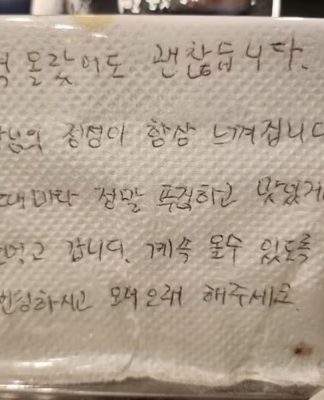 올랐어도 괜찮습니다.
정성이 항상 느껴집니다
때마다 정말 푸짐하고 맛있게
먹고 갑니다. 계속 올수 있도록
오래오래 해주세요.